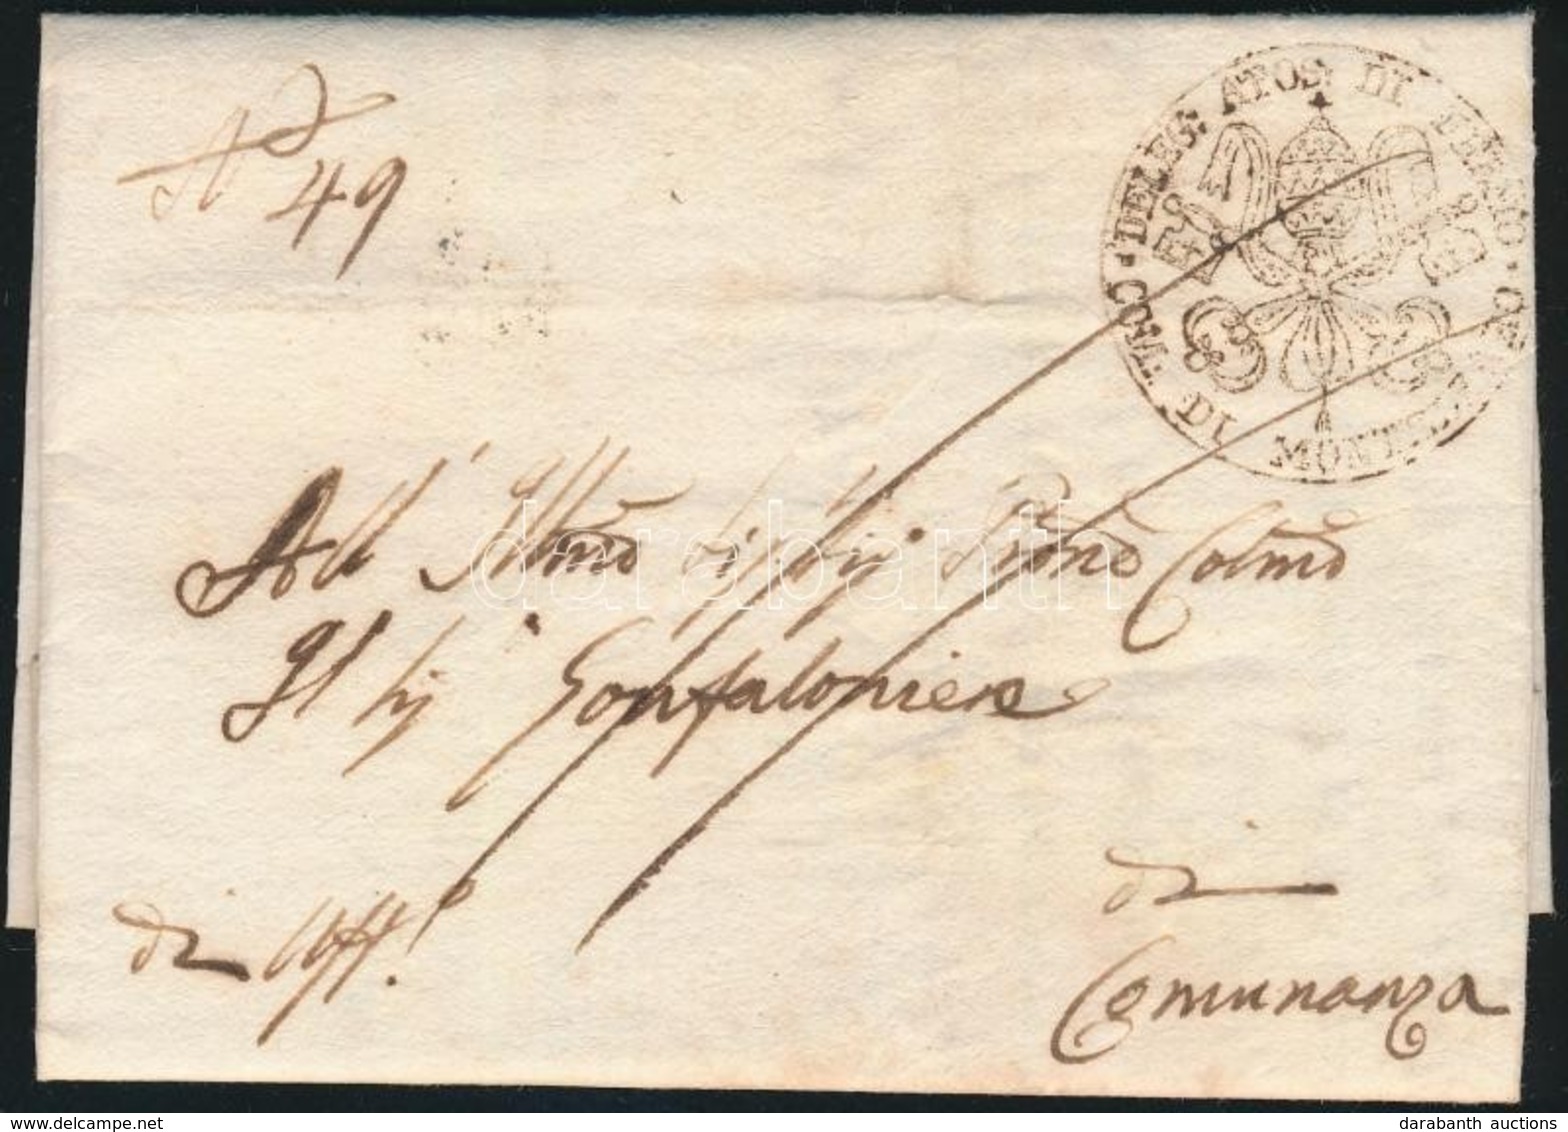 N° 49
DELEG: ATOS: DI FERMO
DI MONTE
All' Illmo Sig Sig Prone Colmo
Il Sig Gonfaloniere
di Uff°
di
Comunanza
darabanth
delcampe.net
darabanth auctions